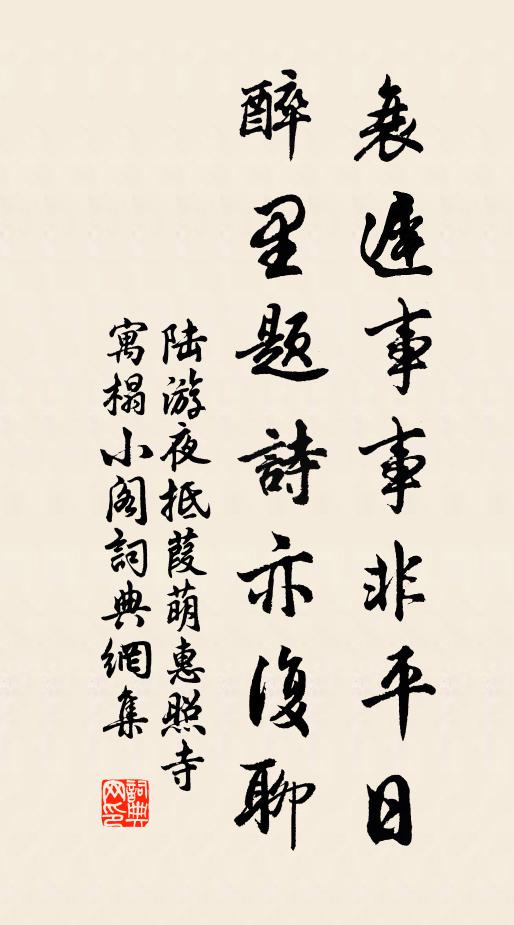 衰遲事事非平日
醉里題詩亦復聊
陆游夜抵葭萌惠照寺
寓榻小阁詞典網集
詞典
网印